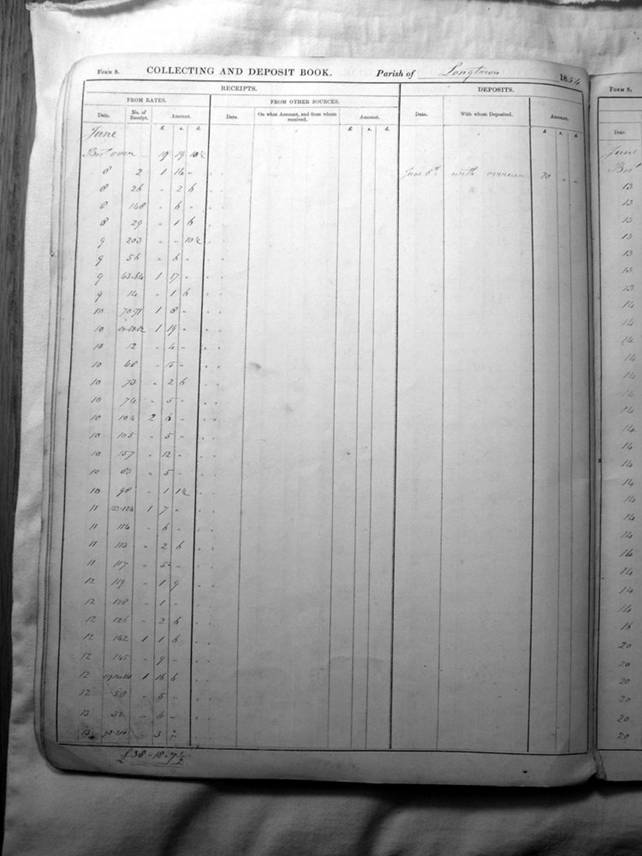 Form 8. COLLECTING AND DEPOSIT BOOK. Parish of Longtown 1854
RECEIPTS. DEPOSITS.
FROM RATES. FROM OTHER SOURCES.
Date. No. of Receipt. Amount. Date. On what Account, and from whom received. Amount. Date. With whom Deposited. Amount.
£ s. d. £ s. d. £ s. d.
June
Bot over 19 19 10½
8 2 1 14 - June 8th with 20 - -
8 26 - 2 6
8 148 - 6 -
8 29 - 1 6
9 203 - - 10½
9 56 - 6 -
9 1 17 -
9 14 - 1 6
10 70-71 1 8 -
10 1 19 -
10 12 - 4 -
10 68 - 5 -
10 73 - 2 6
10 74 - 5 -
10 104 2 8 -
10 105 - 5 -
10 157 - 12 -
10 63 - 5 -
10 98 - 1 1½
11 1 7 -
11 114 - 6 -
11 113 - 2 6
11 117 - 5 -
12 119 - 1 9
12 128 - 1 -
12 126 - 2 6
12 142 1 1 6
12 145 - 9 -
12 1 16 6
12 50 - 5 -
13 52 - 6 -
13 - 3
£38-18-7½
Form 8.
Date.
June
Bot
13
13
13
13
13
13
14
14
14
14
14
14
14
14
14
14
14
14
14
14
14
14
14
14
18
20
20
20
20
20
20